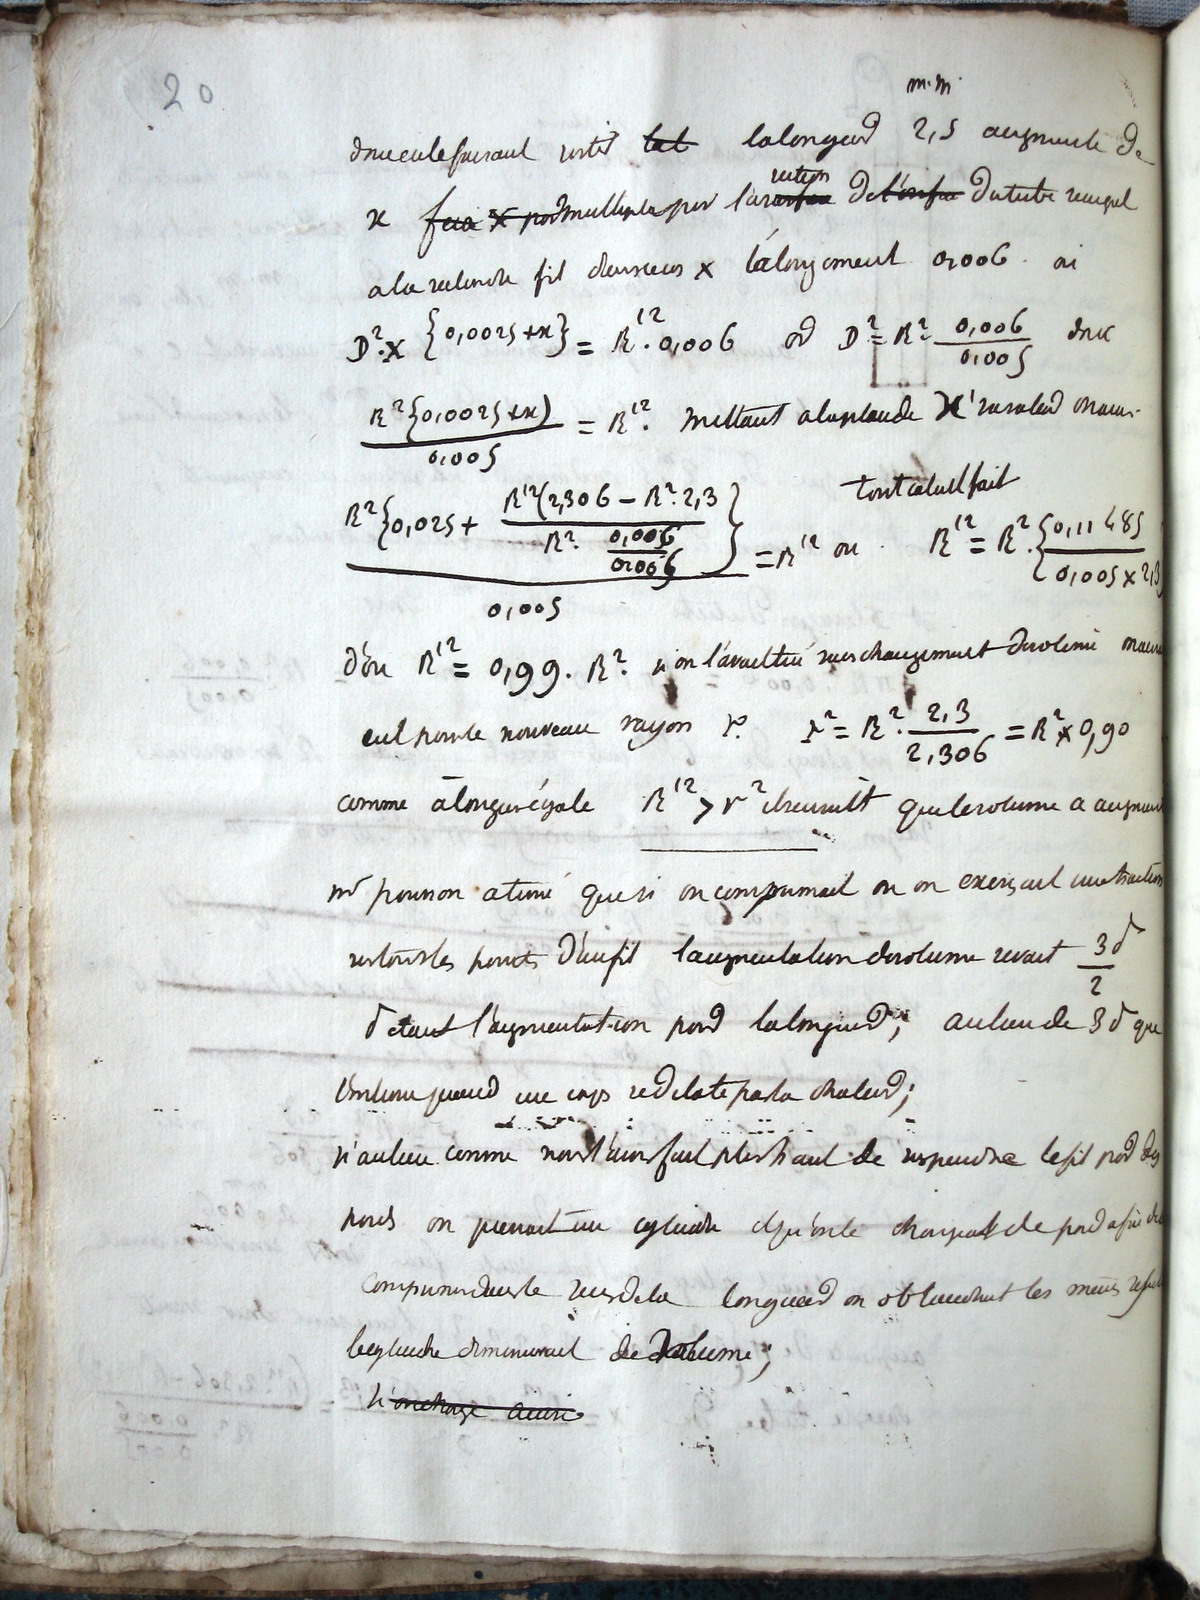 20
m.m.
donc en le faisant sortir la longueur 2,5 augmentée de
x multipliée par la section du tube est égal
à la section du fil dessus x l'alongement 0,006. ai
D². x {0,0025+x} = R'². 0,006 or D² = R². 0,006/0,005 donc
R²{0,0025+x)/0,005 = R'². mettant à la place de x sa valeur on aura
R²{0,025 + R'²(2,306 – R². 2,3/R². 0,006/0,006}/0,005 = R'² ou tout calcul fait R'² = R². {0,11485/0,005 x 2,3}
d'où R'² = 0,99. R². si on l'avait tiré sans changement de volume on aurait
eu pour le nouveau rayon r. r² = R². 2,3/2,306 = R² x 0,90
comme à longueur égale R'² > r² il s'ensuit que le volume a augmenté
mr poisson a trouvé que si on comprimait ou on exerçait une traction
sur tous les points d'un fil l'augmentation de volume serait 3δ/2
δ étant l'augmentation pour la longueur; au lieu de 3δ que
l'on trouve quand un corps se dilate par la chaleur;
si au lieu comme nous l'avons fait plus haut de suspendre le fil par des
poids on prenait un cylindre et qu'on le chargeat de poids afin de
comprimer dans le sens de la longueur on obtiendrait les mêmes
le cylindre diminuerait de volume;
si on charge ainsi